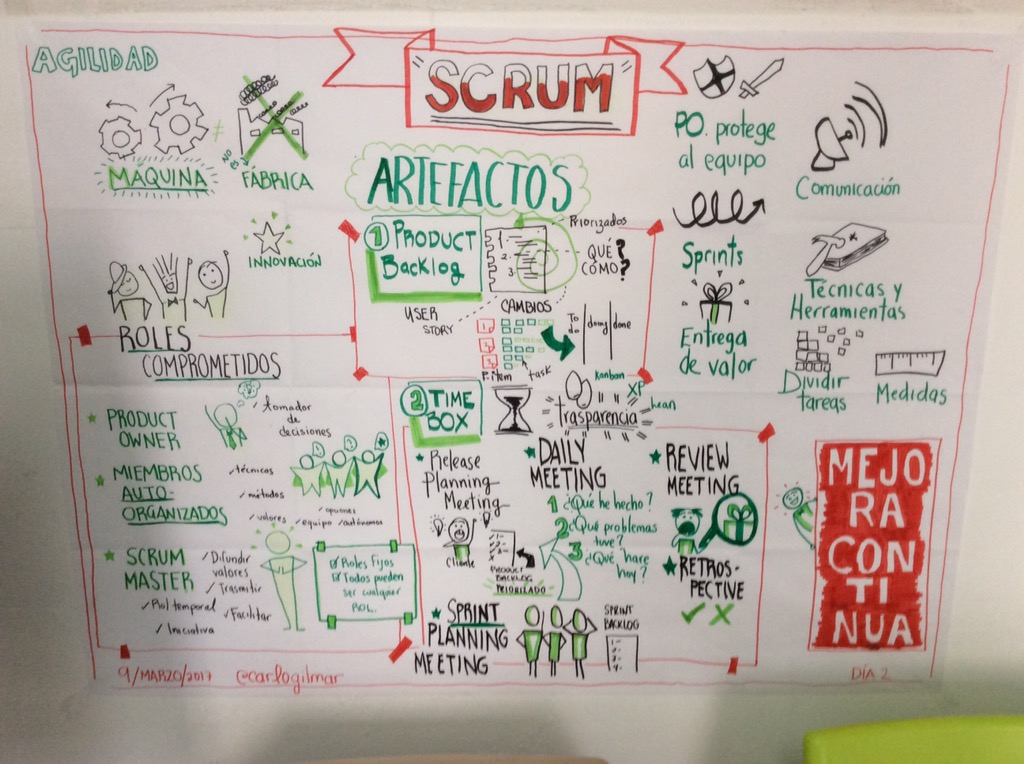 AGILIDAD
"SCRUM"
MÁQUINA
≠
NO ES
FÁBRICA
INNOVACIÓN
ROLES
COMPROMETIDOS
PRODUCT
OWNER
tomador
de
decisiones
MIEMBROS
AUTO-
ORGANIZADOS
técnicas
métodos
valores
opciones
equipo
autónomos
SCRUM
MASTER
Difundir
valores
Trasmitir
Rol temporal
Facilitar
Iniciativa
Roles Fijos
Todos pueden
ser cualquier
ROL.
ARTEFACTOS
1 PRODUCT
Backlog
1.
2.
3.
Priorizados
QUÉ?
CÓMO?
USER
STORY
CAMBIOS
To do
doing
done
P. item
task
kanban
XP
lean
trasparencia
2 TIME
BOX
Release
Planning
Meeting
cliente
PRODUCT
BACKLOG
PRIORIZADO
DAILY
MEETING
1 ¿Qué he hecho?
2 ¿Qué problemas
tuve?
3 ¿Qué hare
hoy?
REVIEW
MEETING
RETROS-
PECTIVE
SPRINT
PLANNING
MEETING
SPRINT
BACKLOG
PO. protege
al equipo
Comunicación
Sprints
Técnicas y
Herramientas
Entrega
de valor
Dividir
tareas
Medidas
MEJO
RA
CON
TI
NUA
9/MARZO/2017
@carlogilmar
DÍA 2